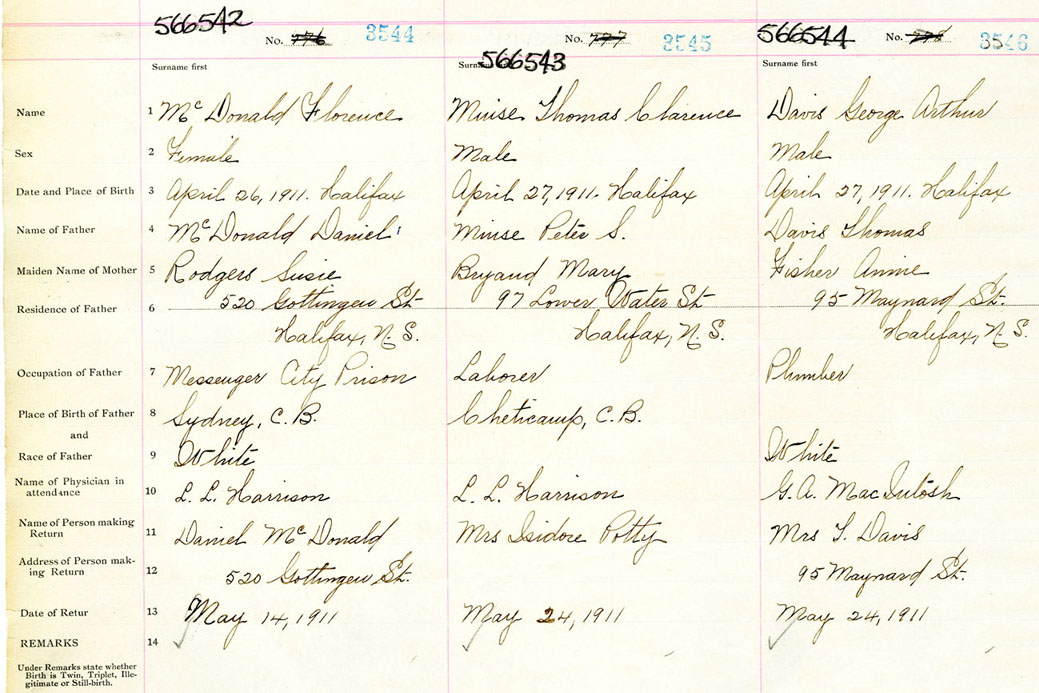 566542 No. 776 3544
566543 No. 777 3545
566544 No. 3546
Surname first Surname first
Name 1 McDonald Florence Muise Thomas Clarence Davis George Arthur
Sex 2 Female Male Male
Date and Place of Birth 3 April 26, 1911. Halifax April 27, 1911. Halifax April 27, 1911. Halifax
Name of Father 4 McDonald Daniel Muise Peter S. Davis Thomas
Maiden Name of Mother 5 Rodgers Susie Bryand Mary Fisher Annie
Residence of Father 6 520 Gottingen St. 97 Lower Water St. 95 Maynard St.
Halifax, N.S. Halifax, N.S. Halifax, N.S.
Occupation of Father 7 Messenger City Prison Laborer Plumber
Place of Birth of Father 8 Sydney, C.B. Cheticamp, C.B.
and
Race of Father 9 White White
Name of Physician in
attendance 10 L. L. Harrison L. L. Harrison G. A. MacIntosh
Name of Person making
Return 11 Daniel McDonald Mrs Isidore Potty Mrs T. Davis
Address of Person mak-
ing Return 12 520 Gottingen St. 95 Maynard St.
Date of Retur 13 May 14, 1911 May 24, 1911 May 24, 1911
REMARKS 14
Under Remarks state whether
Birth is Twin, Triplet, Ille-
gitimate or Still-birth.